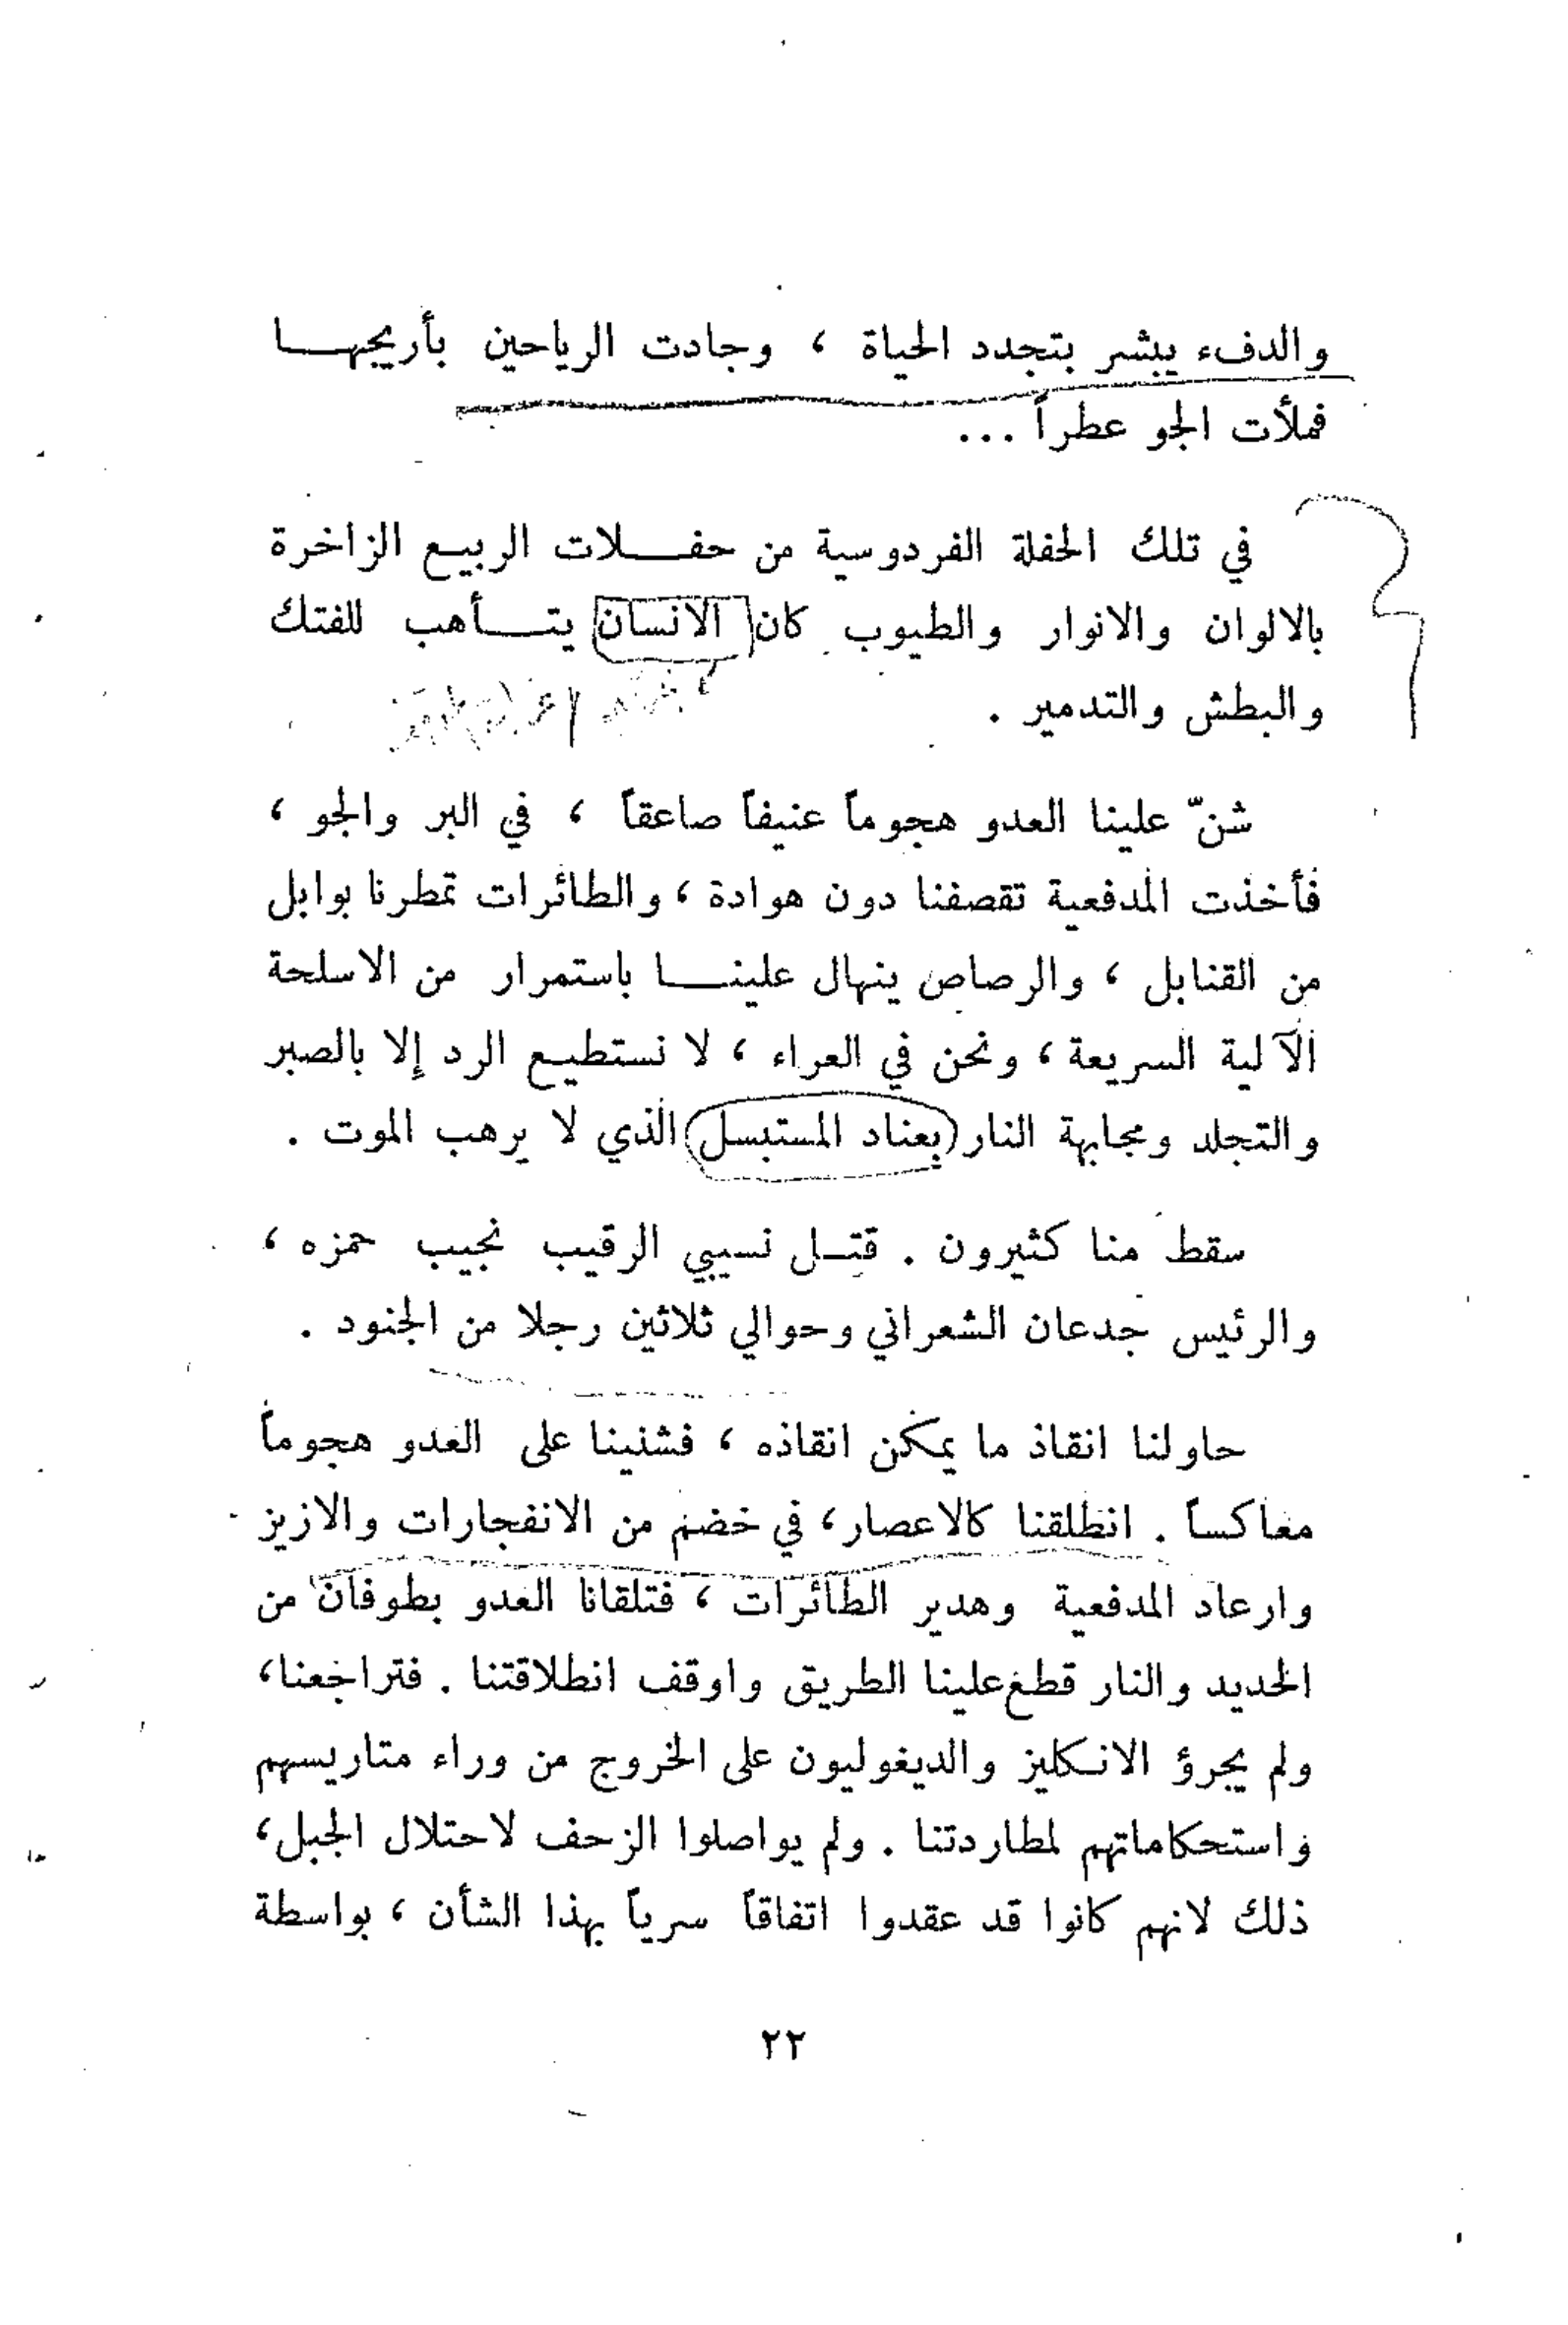 والدفء يبشر بتجدد الحياة ، وجادت الرياحين بأريجهـــا
فملأت الجو عطراً ...
في تلك الحفلة الفردوسية من حفـــلات الربيع الزاخرة
بالالوان والانوار والطيوب كان الانسان يتـــأهب للفتك
والبطش والتدمير .
شنّ علينا العدو هجوماً عنيفاً صاعقاً ، في البر والجو ،
فأخذت المدفعية تقصفنا دون هوادة ، والطائرات تمطرنا بوابل
من القنابل ، والرصاص ينهال علينـــا باستمرار من الاسلحة
الآلية السريعة ، ونحن في العراء ، لا نستطيع الرد إلا بالصبر
والتجلد ومجابهة النار بعناد المستبسل الذي لا يرهب الموت .
سقط منا كثيرون . قتـل نسيبي الرقيب نجيب حمزه ،
والرئيس جدعان الشعراني وحوالي ثلاثين رجلا من الجنود .
حاولنا انقاذ ما يمكن انقاذه ، فشنينا على العدو هجوماً
معاكساً . انطلقنا كالاعصار ، في خضم من الانفجارات والازيز
وارعاد المدفعية وهدير الطائرات ، فتلقانا العدو بطوفان من
الحديد والنار قطع علينا الطريق واوقف انطلاقتنا . فتراجعنا ،
ولم يجرؤ الانكليز والديغوليون على الخروج من وراء متاريسهم
واستحكاماتهم لمطاردتنا . ولم يواصلوا الزحف لاحتلال الجبل ،
ذلك لانهم كانوا قد عقدوا اتفاقاً سرياً بهذا الشأن ، بواسطة
٢٢